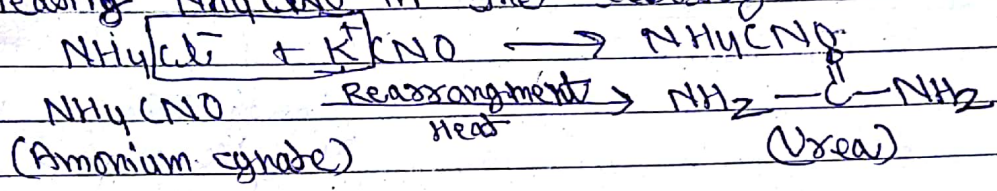 NH4Cl⁻ + K⁺CNO ⟶ NH4CNO
O
||
NH4CNO Rearrangment Heat ⟶ NH2—C—NH2
(Amonium cynate) (Urea)